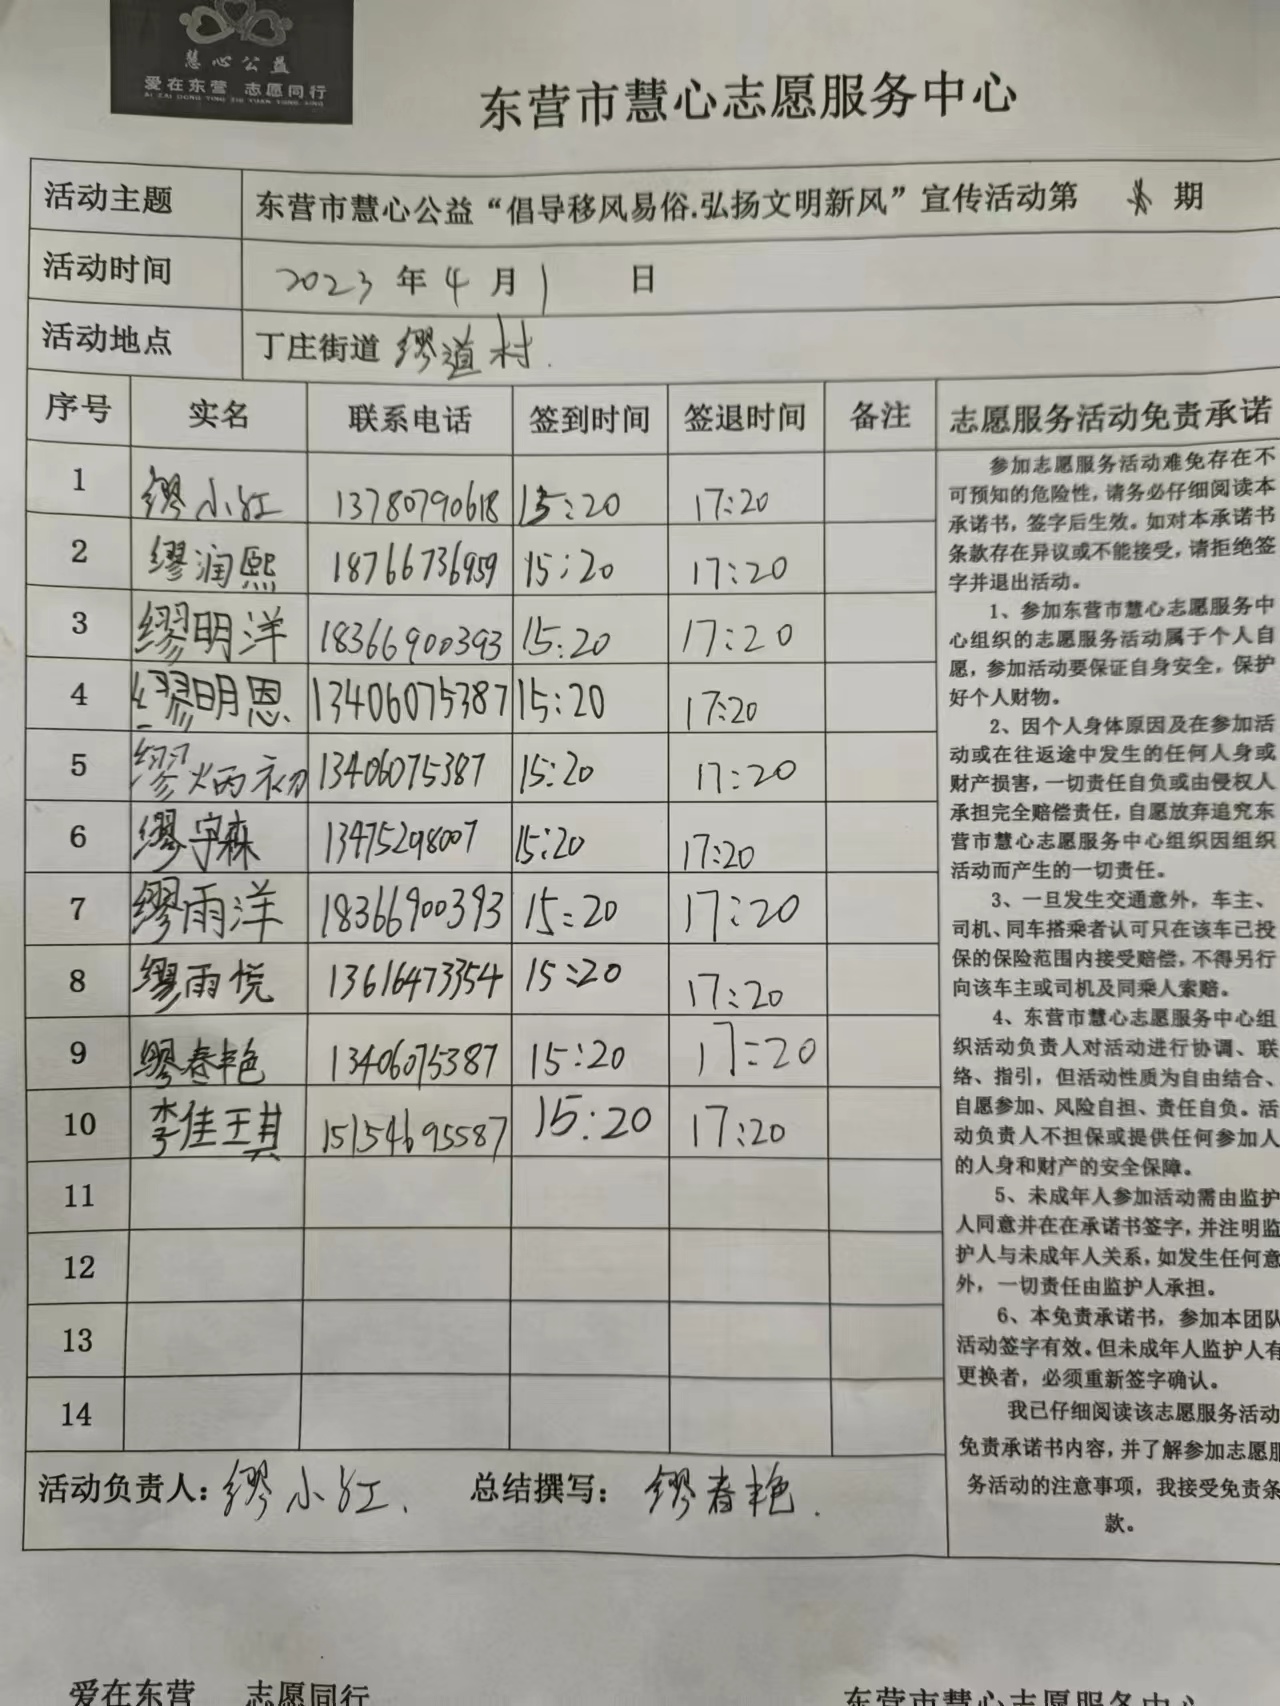 慧心公益
爱在东营 志愿同行
AI ZAI DONG YING ZHI YUAN TONG XING
东营市慧心志愿服务中心
活动主题 东营市慧心公益“倡导移风易俗.弘扬文明新风”宣传活动第 期
活动时间 2023 年 4 月 1 日
活动地点 丁庄街道 缪道村.
序号 实名 联系电话 签到时间 签退时间 备注
1 缪小红 13780790618 15:20 17:20
2 缪润熙 18766736959 15:20 17:20
3 缪明洋 18366900393 15:20 17:20
4 缪明恩 13406075387 15:20 17:20
5 缪炳初 13406075387 15:20 17:20
6 缪宇森 13475298007 15:20 17:20
7 缪雨洋 18366900393 15:20 17:20
8 缪雨悦 13616473354 15:20 17:20
9 缪春艳 13406075387 15:20 17:20
10 李佳琪 15154695587 15:20 17:20
11
12
13
14
活动负责人：缪小红. 总结撰写：缪春艳.
志愿服务活动免责承诺
参加志愿服务活动难免存在不
可预知的危险性，请务必仔细阅读本
承诺书，签字后生效。如对本承诺书
条款存在异议或不能接受，请拒绝签
字并退出活动。
1、参加东营市慧心志愿服务中
心组织的志愿服务活动属于个人自
愿，参加活动要保证自身安全，保护
好个人财物。
2、因个人身体原因及在参加活
动或在往返途中发生的任何人身或
财产损害，一切责任自负或由侵权人
承担完全赔偿责任，自愿放弃追究东
营市慧心志愿服务中心组织因组织
活动而产生的一切责任。
3、一旦发生交通意外，车主、
司机、同车搭乘者认可只在该车已投
保的保险范围内接受赔偿，不得另行
向该车主或司机及同乘人索赔。
4、东营市慧心志愿服务中心组
织活动负责人对活动进行协调、联
络、指引，但活动性质为自由结合、
自愿参加、风险自担、责任自负。活
动负责人不担保或提供任何参加人
的人身和财产的安全保障。
5、未成年人参加活动需由监护
人同意并在在承诺书签字，并注明监
护人与未成年人关系，如发生任何意
外，一切责任由监护人承担。
6、本免责承诺书，参加本团队
活动签字有效。但未成年人监护人有
更换者，必须重新签字确认。
我已仔细阅读该志愿服务活动
免责承诺书内容，并了解参加志愿服
务活动的注意事项，我接受免责条
款。
爱在东营 志愿同行
东营市慧心志愿服务中心